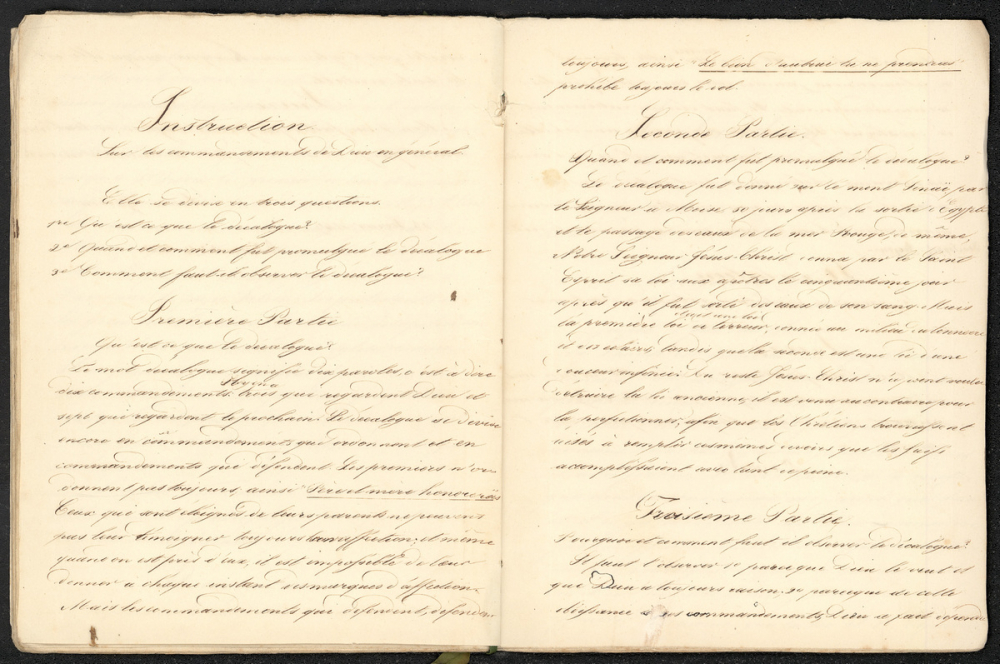 Instruction.
Sur les commandements de Dieu en général.
Elle se divise en trois questions.
1re Qu'est ce que le décalogue?
2e Quand et comment fut promulgué le décalogue
3e Comment faut-il observer le décalogue?
Première Partie
Qu'est ce que le décalogue?
Le mot décalogue signifie dix paroles, c'est à dire
dix commandements: trois que regardent Dieu et
sept qui regardent le prochain. Le décalogue se divise
encore en commandements qui ordonnent et en
commandements qui défendent. Les premiers n'or-
donnent pas toujours, ainsi Père et mère honoreras
Ceux qui sont éloignés de leurs parents ne peuvent
pas leur témoigner toujours affection; et même
quand on est près d'eux, il est impossible de leur
donner a chaque instant des marques d'affection.
Mais les commandements qui défendent, défendent
toujours, ainsi Le bien d'autrui tu ne prendras
prohibe toujours le vol.
Seconde Partie.
Quand et comment fut promulgué le décalogue?
Le décalogue fut donné sur le mont Sinaï par
le Seigneur à Moïse 50 jours après la sortie d'Egypte
et le passage des eaux de la mer Rouge; de même
Notre Seigneur Jésus-Christ donna par le Saint
Esprit sa loi aux apôtres le cinquantième jour
après qu'il fut sorti des eaux de son sang. Mais
la première loi de terreur, donnée au milieu du tonnerre
et des éclairs, tandis que la seconde est une loi d'une
douceur infinie. Du reste Jésus-Christ n'a point voulu
détruire la loi ancienne, il est venu au contraire pour
la perfectionner, afin que les Chrétiens
aidés à remplir ces mêmes devoirs que les Juifs
accomplissaient avec tant de peine.
Troisième Partie.
Pourquoi et comment faut il observer le décalogue?
Il faut l'observer 1o parceque Dieu le veut et
que Dieu a toujours raison. 2o parceque de cette
obéissance à ses commandements, Dieu se fait dépendre